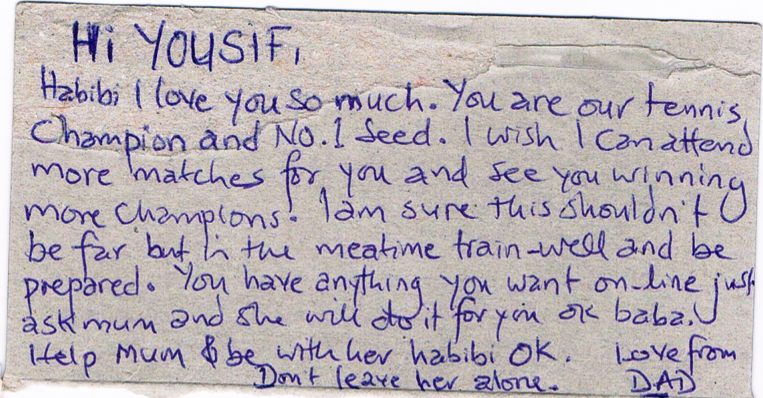 Hi YOUSIF,
Habibi I love you so much. You are our tennis
Champion and No.1 Seed. I wish I can attend
more matches for you and see you winning
more champions. I am sure this shouldn't
be far but in the meatime train-well and be
prepared. You have anything you want on-line just
ask mum and she will do it for you ok baba.
Help Mum & be with her habibi OK. Love from
Don't leave her alone. DAD